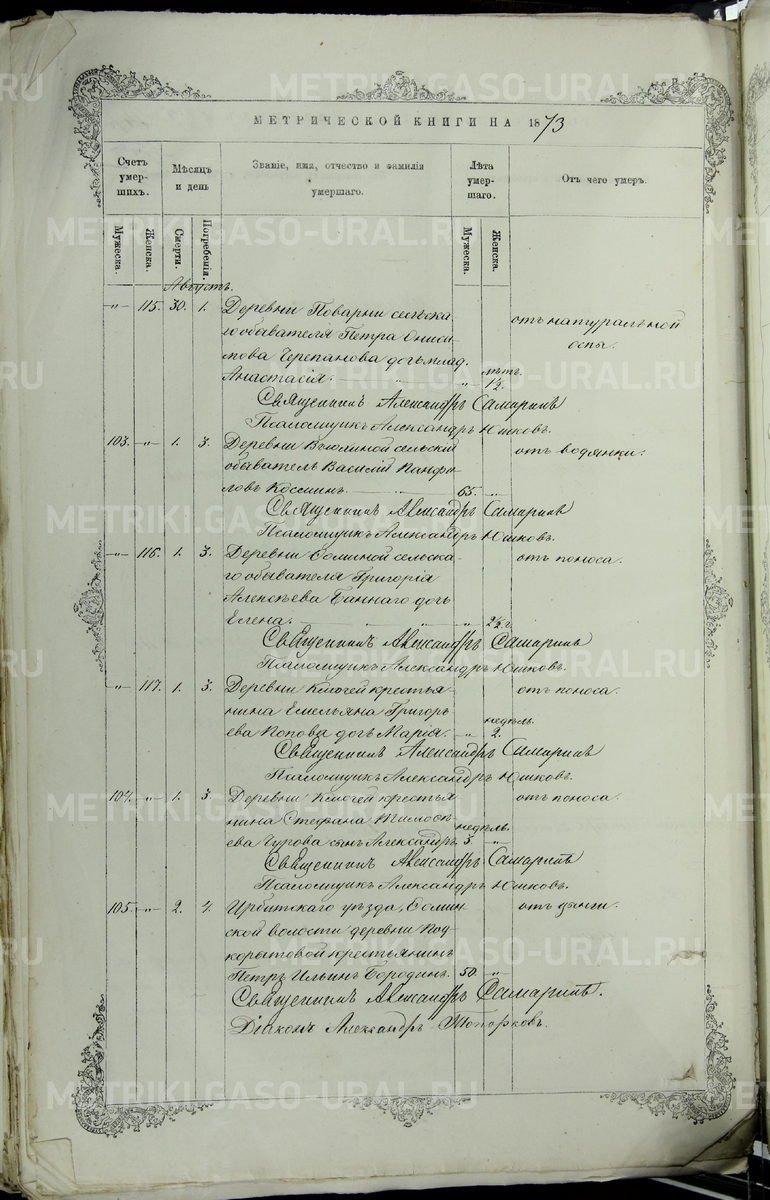 МЕТРИЧЕСКОЙ КНИГИ НА 1873
Счетъ умер- шихъ.
Мѣсяцъ и день
Званіе, имя, отчество и фамилія умершаго.
Лѣта умер- шаго.
Отъ чего умеръ.
Мужеска. Женска. Смерти. Погребенія. Мужеска. Женска.
Августъ.
-"- 115. 30. 1. Деревни Поварни сельска-
го обывателя Петра Ониси- отъ натуральной
мова Черепанова дочь млад. оспы.
Анастасія. -"- лѣтъ. 1½.
Священникъ Александръ Самаринъ
Псаломщикъ Александръ Юшковъ.
103. -"- 1. 3. Деревни сельскій отъ водянки.
обыватель Василій Панфи-
ловъ 65. -"-
Священникъ Александръ Самаринъ
Псаломщикъ Александръ Юшковъ.
-"- 116. 1. 3. Деревни сельска- отъ поноса.
го обывателя Григорія
Алексѣева Баннаго дочь
Елена. -"- 2½ г.
Священникъ Александръ Самаринъ
Псаломщикъ Александръ Юшковъ.
-"- 117. 1. 3. Деревни Ключей крестья- отъ поноса.
нина Емельяна Григорь-
ева Попова дочь Марія. -"- недѣль. 2.
Священникъ Александръ Самаринъ
Псаломщикъ Александръ Юшковъ.
104. -"- 1. 3. Деревни Ключей крестья- отъ поноса.
нина Стефана Тимоѳе-
ева Чурова сынъ Александръ. недѣль. 5. -"-
Священникъ Александръ Самаринъ
Псаломщикъ Александръ Юшковъ.
105. -"- 2. 4. Ирбитскаго уѣзда, отъ цынги.
ской волости деревни Под-
корытовой крестьянинъ
Петръ Ильинъ Бородинъ. 50. -"-
Священникъ Александръ Самаринъ.
Діаконъ Александръ Топорковъ.
METRIKI.GASO-URAL.RU